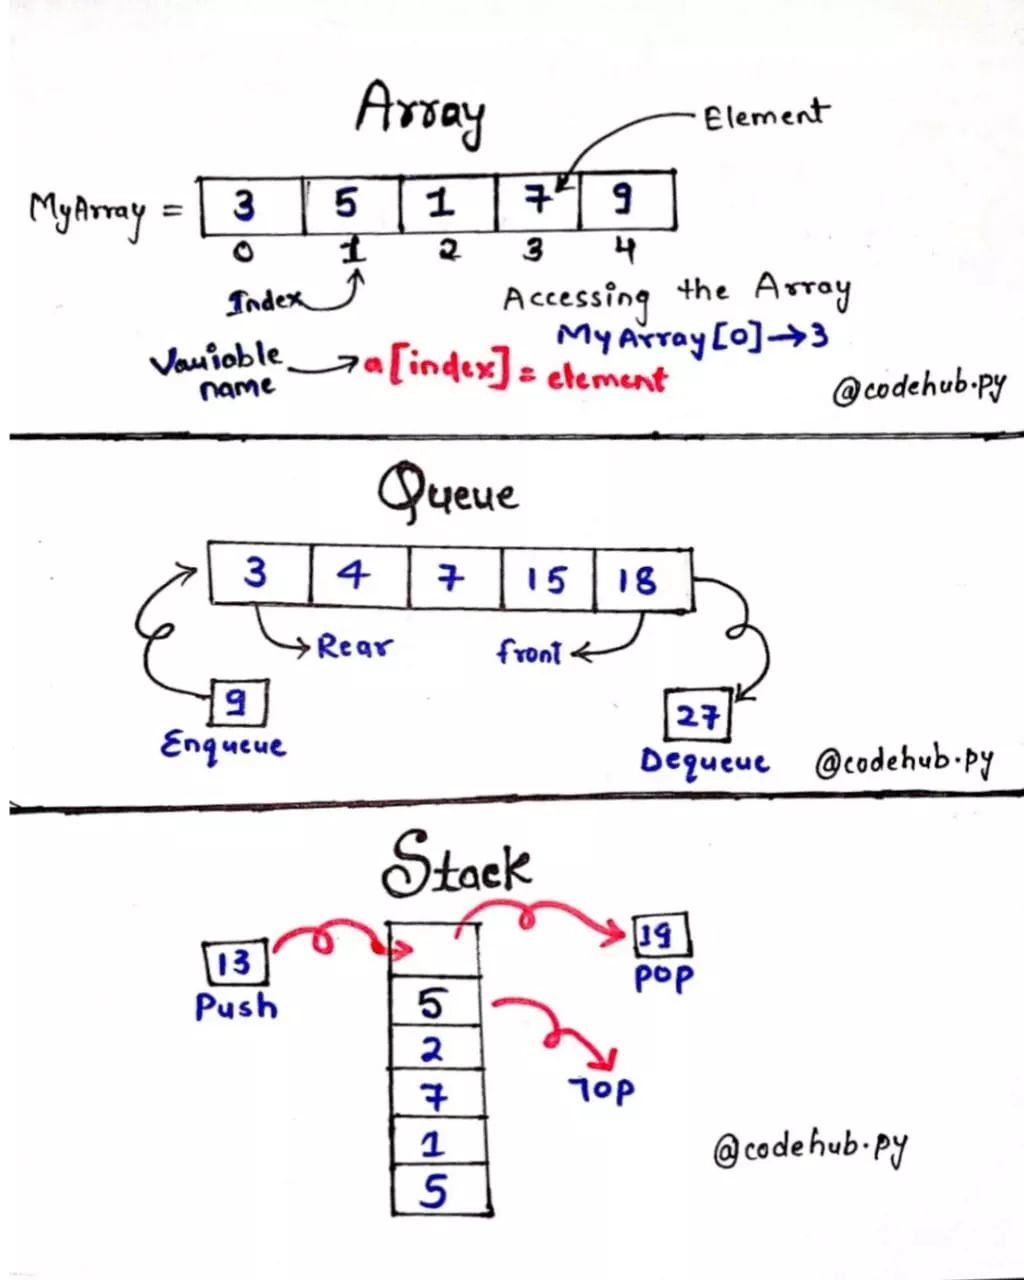 Array
Element
MyArray = 3 5 1 7 9
0 1 2 3 4
Index
Accessing the Array
MyArray[0]→3
Variable name → a[index] = element
@codehub.py
Queue
3 4 7 15 18
Rear
front
9
Enqueue
27
Dequeue
@codehub.py
Stack
13
Push
19
POP
5
2
7
1
5
TOP
@codehub.py